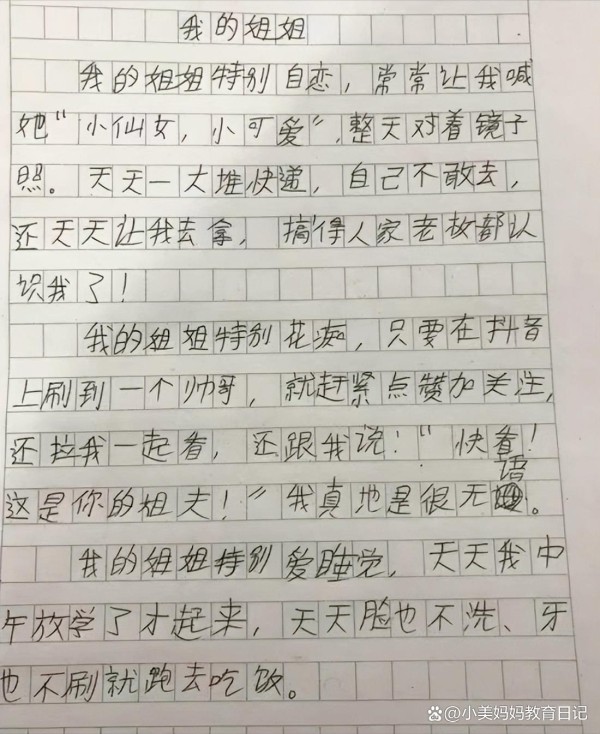 我的姐姐
我的姐姐特别自恋，常常让我喊
她“小仙女，小可爱”，整天对着镜子
照。天天一大堆快递，自己不敢去，
还天天让我去拿，搞得人家老板都认
识我了！
我的姐姐特别花痴，只要在抖音
上刷到一个帅哥，就赶紧点赞加关注，
还拉我一起看，还跟我说：“快看！
这是你的姐夫！”我真地是很无语。
我的姐姐特别爱睡觉，天天我中
午放学了才起来，天天脸也不洗、牙
也不刷就跑去吃饭。
@小美妈妈教育日记